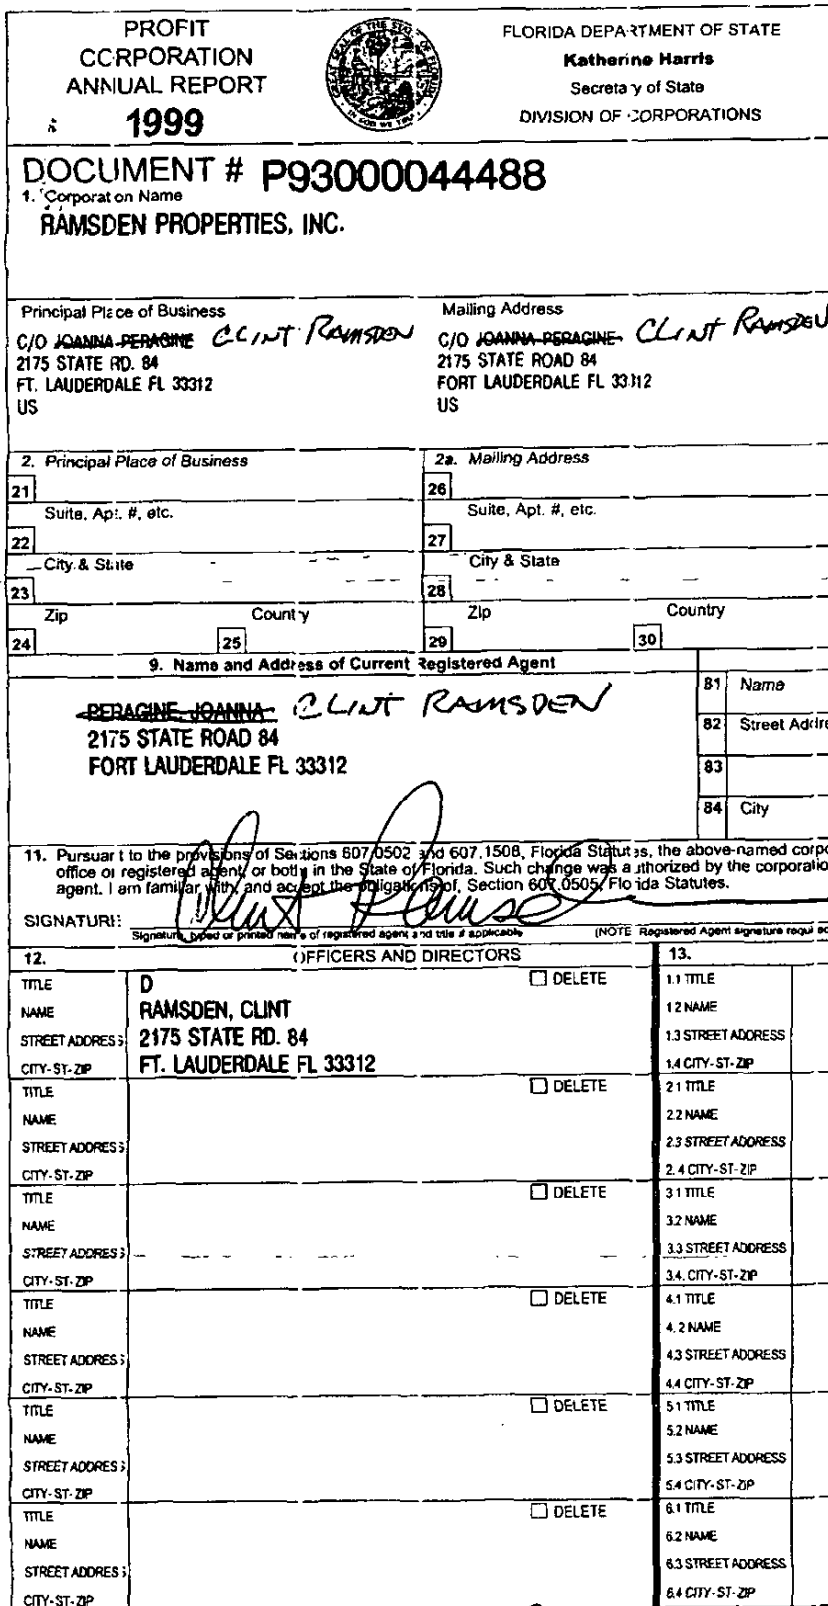 PROFIT
CORPORATION
ANNUAL REPORT
1999
FLORIDA DEPARTMENT OF STATE
Katherine Harris
Secretary of State
DIVISION OF CORPORATIONS
DOCUMENT # P93000044488
1. Corporation Name
RAMSDEN PROPERTIES, INC.
Principal Place of Business
C/O JOANNA PERAGINE CLINT RAMSDEN
2175 STATE RD. 84
FT. LAUDERDALE FL 33312
US
Mailing Address
C/O JOANNA PERAGINE CLINT RAMSDEN
2175 STATE ROAD 84
FORT LAUDERDALE FL 33312
US
2. Principal Place of Business
21
Suite, Apt. #, etc.
22
City & State
23
Zip
24
Country
25
2a. Mailing Address
26
Suite, Apt. #, etc.
27
City & State
28
Zip
29
Country
30
9. Name and Address of Current Registered Agent
PERAGINE, JOANNA CLINT RAMSDEN
2175 STATE ROAD 84
FORT LAUDERDALE FL 33312
81 Name
82 Street Addre
83
84 City
11. Pursuant to the provisions of Sections 607.0502 and 607.1508, Florida Statutes, the above-named corpo
office or registered agent, or both, in the State of Florida. Such change was authorized by the corporatio
agent. I am familiar with, and accept the obligations of, Section 607.0505, Florida Statutes.
SIGNATURE Clint Ramsden
Signature, typed or printed name of registered agent and title if applicable (NOTE Registered Agent signature required
12. OFFICERS AND DIRECTORS
TITLE D DELETE
NAME RAMSDEN, CLINT
STREET ADDRESS 2175 STATE RD. 84
CITY-ST-ZIP FT. LAUDERDALE FL 33312
TITLE DELETE
NAME
STREET ADDRESS
CITY-ST-ZIP
TITLE DELETE
NAME
STREET ADDRESS
CITY-ST-ZIP
TITLE DELETE
NAME
STREET ADDRESS
CITY-ST-ZIP
TITLE DELETE
NAME
STREET ADDRESS
CITY-ST-ZIP
TITLE DELETE
NAME
STREET ADDRESS
CITY-ST-ZIP
13.
1.1 TITLE
1.2 NAME
1.3 STREET ADDRESS
1.4 CITY-ST-ZIP
2.1 TITLE
2.2 NAME
2.3 STREET ADDRESS
2.4 CITY-ST-ZIP
3.1 TITLE
3.2 NAME
3.3 STREET ADDRESS
3.4. CITY-ST-ZIP
4.1 TITLE
4.2 NAME
4.3 STREET ADDRESS
4.4 CITY-ST-ZIP
5.1 TITLE
5.2 NAME
5.3 STREET ADDRESS
5.4 CITY-ST-ZIP
6.1 TITLE
6.2 NAME
6.3 STREET ADDRESS
6.4 CITY-ST-ZIP